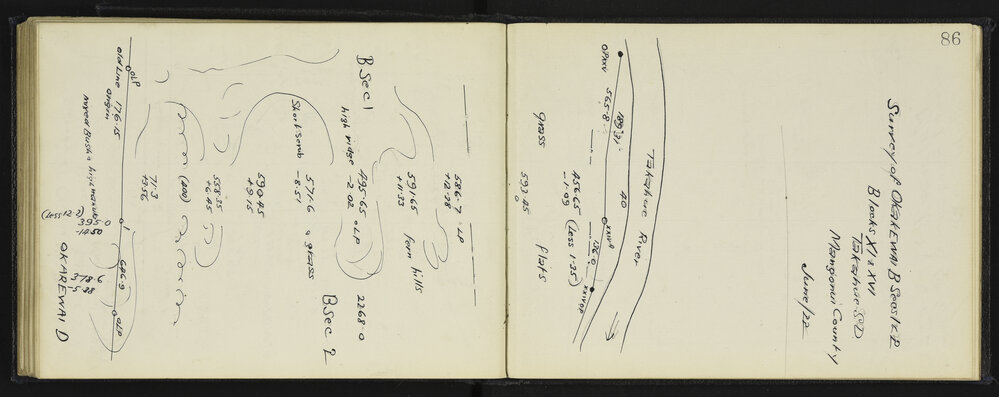 86
Survey of OKAREWAI B Secs 1 & 2
Blocks XI & XVI
Takahue S.D.
Mangonui County
June/22
Takahue River
OPXXV
565.8
40
XXIVA
136.0
XXIVOP
456.65 (Less 1.25)
-1.09
grass
593.45
0
flats
586.7 OLP
+12.98
591.65
+11.33
fern hills
B Sec 1
high ridge
495.65 OLP
-2.02
2268.0
Short scrub
571.6
-8.51
& grass
B Sec 2
590.45
+9.15
558.35
+6.45
(200)
71.3
+3.56
OLP
Old Line 176.15
Origin
1
686.9
OLP
Mixed Bush & high manuka
(Less 12.2)
395.0
-14.50
378.6
-5.88
OKAREWAI D